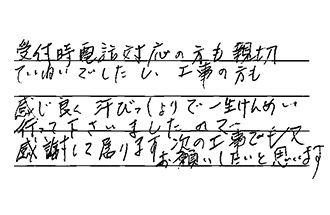 受付時電話対応の方も親切
ていねいでしたし、工事の方も
感じ良く汗びっしょりで一生けんめい
行って下さいましたので
感謝して居ります。次の工事でも又
お願いしたいと思います